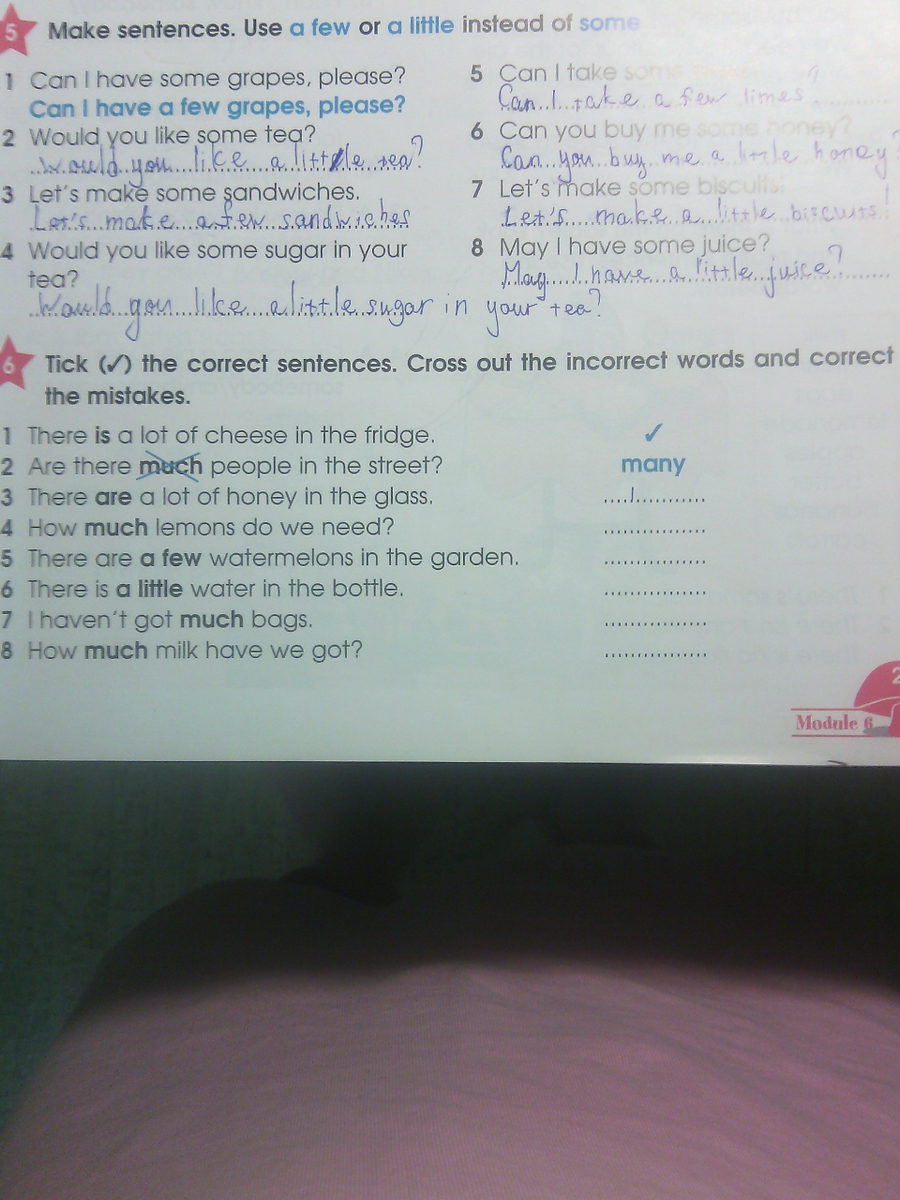 5 Make sentences. Use a few or a little instead of some
1 Can I have some grapes, please?
Can I have a few grapes, please?
2 Would you like some tea?
Would you like a little tea?
3 Let's make some sandwiches.
Let's make a few sandwiches
4 Would you like some sugar in your
tea?
Would you like a little sugar in your tea?
5 Can I take some
Can I take a few limes ?
6 Can you buy me some honey?
Can you buy me a little honey?
7 Let's make some biscuits.
Let's make a little biscuits!
8 May I have some juice?
May I have a little juice?
6 Tick (✓) the correct sentences. Cross out the incorrect words and correct
the mistakes.
1 There is a lot of cheese in the fridge. ✓
2 Are there much people in the street? many
3 There are a lot of honey in the glass.
4 How much lemons do we need?
5 There are a few watermelons in the garden.
6 There is a little water in the bottle.
7 I haven't got much bags.
8 How much milk have we got?
2
Module 6